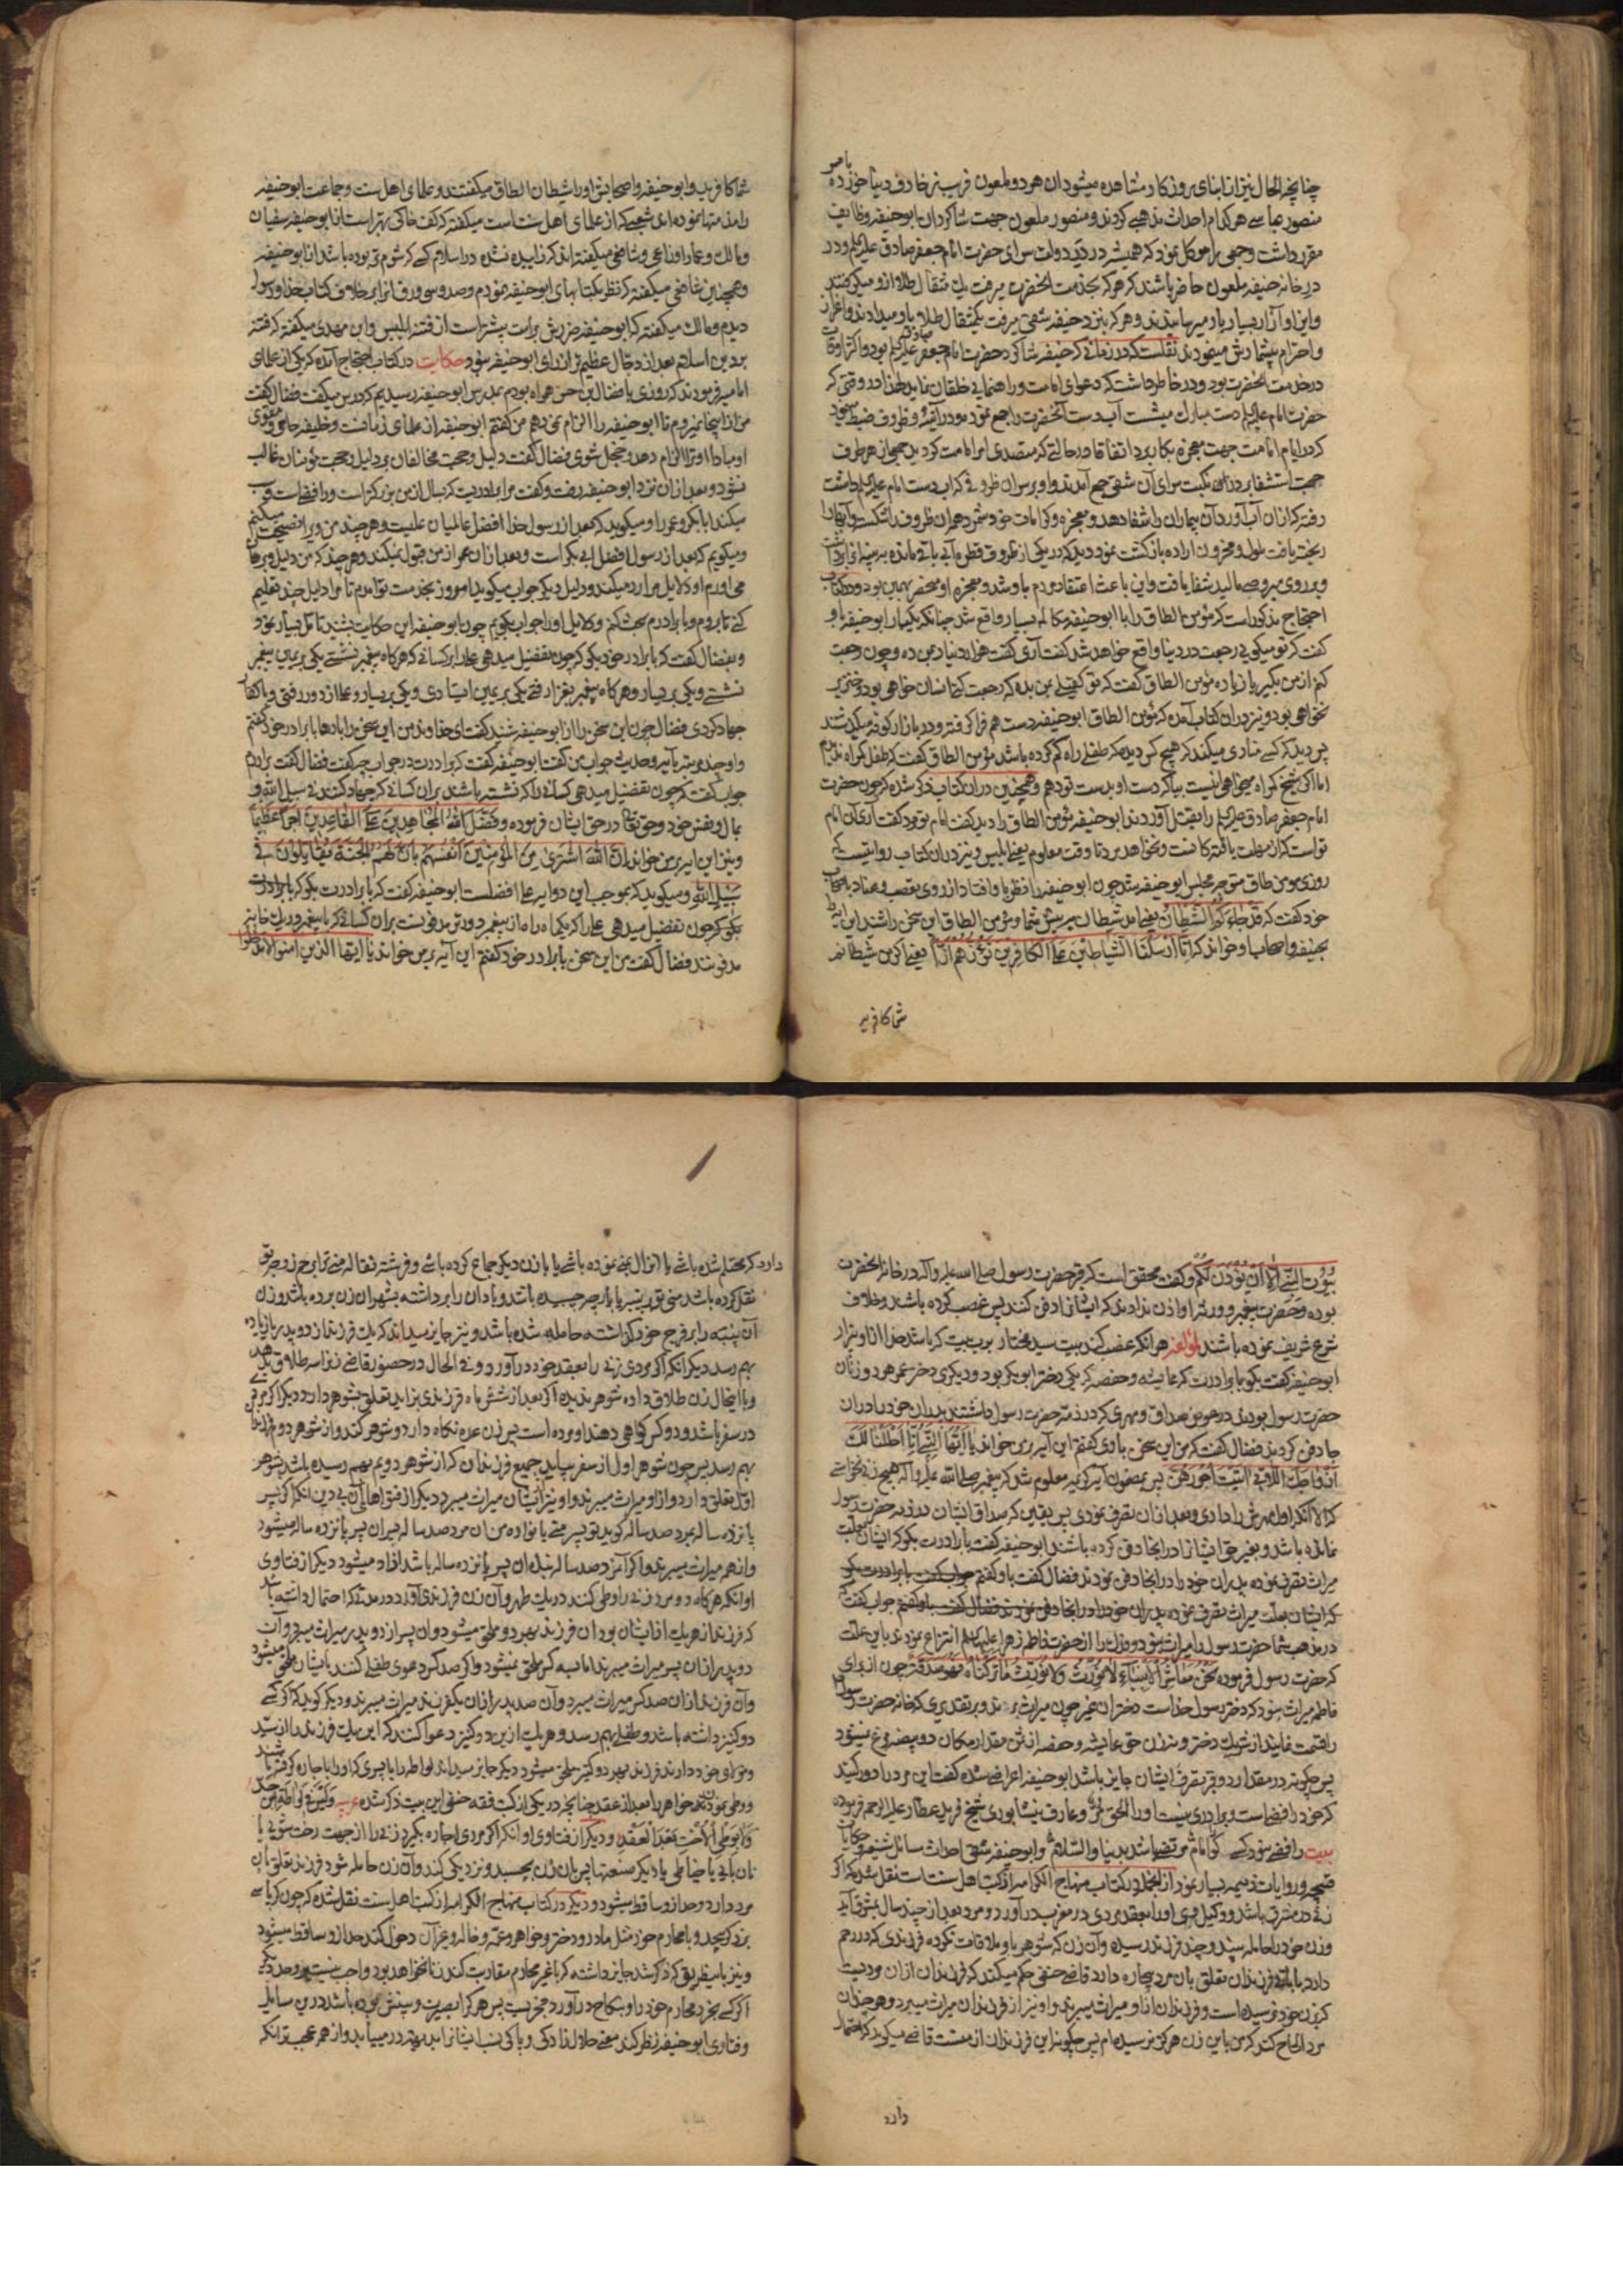 چنانچه الحال نیز از ابنای روزکار مشاهده میشود ان هر دو ملعون فریب زخارف دنیا خورده با هم
منصور عباسی هر کدام احداث مذهبی کردند و منصور ملعون جهت شاکردان ابوحنیفه وظایف
مقرر داشت و جمعی را موکل نمود که همیشه در در دولت سرای حضرت امام جعفر صادق علیه السلم و در
در خانه حنیفه ملعون حاضر باشند که هر که بخدمت الحضرت میرفت یک مثقال طلا ازو میکرفتند
و ایذا و آزار بسیار باو میرسانیدند و هر که بنزد حنیفه شقی میرفت یکمثقال طلا باو میدادند و اعزاز
و احترام بیشمارش مینمودند نقلست که در زمانی که حنیفه شاکرد حضرت امام جعفر صادق علیه السلم بود و اکثر اوقات
در خدمت الحضرت بود و در خاطر داشت که دعوای امامت و راهنمایی خلقان نماید لهذا در وقتی که
حضرت امام علیه السلم دست مبارک میشست آب دست آنحضرت را جمع نموده در آنیه و ظروف ضبط مینمود
که در ایام امامت جهت معجزه بکار برد اتفاقا در حالتی که متصدی امر امامت کردید جمعی از هر طرف
جهت استشفا بر در آن نکبت سرای آن شقی جمع آمدند و او بر سر آن ظروفی که آب دست امام علیه السلم داشت
رفته که از ان آب آورد و آن بیماران را شفا دهد و معجزه و کرامات خود شمرد همه آن ظروف را شکسته و آبها را
ریخته یافت ملول و محزون اراده بازکشت نمود دید که در یکی از ظروف قطره آبی باقی مانده به پنبه از آن برداشت
و بر روی مبروصی مالید شفا یافت و این باعث اعتقاد مردم باو شد و معجزه او منحصر بهمین بود و در کتاب
احتجاج مذکور است که مؤمن الطاق را با ابوحنیفه مکالمه بسیار واقع شد چنانکه یکبار ابوحنیفه باو
کفت که تو میکویی رجعت در دنیا واقع خواهد شد کفت آری کفت هزار دینار بمن ده و چون رجعت
کنم از من بکیر یا زیاده مؤمن الطاق کفت که تو کفیلی بمن بده که در رجعت کنی انسان خواهی بود و خنزیر
نخواهی بود و نیز در ان کتاب آمده که مؤمن الطاق ابوحنیفه دست هم فرا کرفته و در بازار کوفه میکذشتند
پس دید که کسی منادی میکند که هیچ کس دیده که طفلی راه کم کرده باشد مؤمن الطاق کفت که طفل کمراه ندیدم
اما اکر شیخ کمراه میخواهی اینست بیا که دست او بدست تو دهم و همچنین در ان کتاب ذکر شده که چون حضرت
امام جعفر صادق علیه السلم را بقتل آوردند ابوحنیفه مؤمن الطاق را دید کفت امام تو مرد کفت آری آن امام
تو است که از مهلت یافته کانست و نخواهد مرد تا وقت معلوم یعنی ابلیس و نیز در ان کتاب روایتست که
روزی مومن طاق متوجه مجلس ابوحنیفه شد چون ابوحنیفه را نظر باو افتاد از روی تعصب و عناد باصحاب
خود کفت که قد جاءکم الشیطان یعنی آمد شیطان بپیش شما و مؤمن الطاق این سخن را شنید این آیه را
بحنیفه و اصحاب او خواند که انا ارسلنا الشیاطین علی الکافرین تؤزهم ازا یعنی اکر من شیطانم
شما کافرید
شما کافرید و ابوحنیفه و اصحابش او را شیطان الطاق میکفتند و علمای اهل سنت و جماعت ابوحنیفه
را مذمتها نموده اند شعبی که از علمای اهل سنت است میکفته که کف خاکی بهتر است از ابوحنیفه سفیان
و مالک و عمار و اوزاعی و شافعی میکفته اند که زاییده نشده در اسلام کسی که شوم تر بوده باشد از ابوحنیفه
و همچنین شافعی میکفته که نظر بکتابهای ابوحنیفه نمودم و صد و سی ورق از برای خلاف کتاب خدا و رسول
دیدم و مالک میکفته که ابوحنیفه ضررش بر امت بیشتر است از فتنه ابلیس و ابن مهدی میکفته که فتنه
بر دین اسلام بعد از دجال عظیم تر از رای ابوحنیفه نبود حکایت در کتاب احتجاج آمده که یکی از علمای
امامیه فرموده اند که روزی با فضال ابن حسن همراه بودم بمدرس ابوحنیفه رسیدیم که درس میکفت فضال کفت
من از اینجا نمیروم تا ابوحنیفه را الزام نمی دهم من کفتم ابوحنیفه از علمای زمانست و خلیفه حامی و مقوی
او مبادا او ترا الزام دهد و خجل شوی فضال کفت دلیل و حجت مخالفان بر دلیل و حجت مؤمنان غالب
نشود و بعد از ان نزد ابوحنیفه رفت و کفت مرا برادریست که بسال از من بزرکتر است و رافضی است و سب
میکند ابابکر و عمر را و میکوید که بعد از رسول خدا افضل عالمیان علیست و هر چند من ویرا نصیحت میکنم
و میکویم که بعد از رسول افضل ابی بکر است و بعد از ان عمر از من قبول نمیکند و هر چند که من دلیل و برهان
می آورم او دلایل مرا رد میکند و دلیل دیکر جواب میکوید امروز بخدمت تو آمدم تا مرا دلیل چند تعلیم
کنی تا بروم و با برادرم بحث کنم و دلایل او را جواب بکویم چون ابوحنیفه این حکایت بشنید تامل بسیار نمود
و بفضال کفت که با برادر خود بکو که چون تفضیل میدهی علی را بر کسانی که هر کاه پیغمبر نشستی یکی بر یمین پیغمبر
نشستی و یکی بر یسار و هر کاه پیغمبر بغزا رفتی یکی بر یمین ایستادی و یکی بر یسار و علی از دور رفتی و با کفار
جهاد کردی فضال چون این سخن را از ابوحنیفه شنید کفت ای خداوند من این سخن را بارها با برادر خود کفتم
و او چند مرتبه بآیه و حدیث جواب من کفت ابوحنیفه کفت که برادرت در جواب چه کفت فضال کفت برادرم
جواب کفت که چون تفضیل میدهی کسانی را که نشسته باشند بر ان کسانی که جهاد کنند فی سبیل الله و
بمال و نفس خود و حق تعالی در حق ایشان فرموده و فضل الله المجاهدین علی القاعدین اجرا عظیما
و نیز این آیه بر من خواند ان الله اشتری من المؤمنین انفسهم بان لهم الجنة یقاتلون فی
سبیل الله و میکوید که بموجب این دو آیه علی افضلست ابوحنیفه کفت که با برادرت بکو که با برادرت
بکو که چون تفضیل میدهی علی را که یکماه راه از پیغمبر دورتر مدفونست بر ان کسانی که با پیغمبر در یک خانه
مدفونند فضال کفت من این سخن با برادر خود کفتم این آیه بر من خواند یا ایها الذین امنوا لاتدخلوا
بیوت النبی الا ان یؤذن لکم و کفت محقق است که قبر حضرت رسول صلی الله علیه و آله در خانه الحضرت
بوده و حضرت پیغمبر و ورثه او اذن ندادند که ایشان را دفن کنند پس غصب کرده باشند و خلاف
شرع شریف نموده باشند لمؤلفه هر انکه غصب کند بیت سید مختار بر ب بیت که باشد خدا از او بیزار
ابوحنیفه کفت بکو با برادرت که عایشه و حفصه که یکی دختر ابوبکر بود و دیکری دختر عمر هر دو زنان
حضرت رسول بودند در عوض صداق و مهری که در ذمه حضرت رسول داشتند پدران خود را در ان
جا دفن کردند فضال کفت که من این سخن باوی کفتم این آیه بر من خواند یا ایها النبی انا احللنا لک
ازواجک اللاتی اتیت اجورهن پس بمضمون آیه کریمه معلوم شد که پیغمبر صلی الله علیه و آله هیچ زنی نخواستی
که الا انکه اول مهرش را دادی و بعد از ان تصرف نمودی پس یقین که صداق ایشان در ذمه حضرت رسول
نمانده باشد و بغیر حق ایشان را در انجا دفن کرده باشند ابوحنیفه کفت با برادرت بکو که ایشان بعلت
میراث تصرف نموده پدران خود را در انجا دفن نمودند فضال کفت باو کفتم جواب کفت با برادرت بکو
که ایشان بعلت میراث تصرف نموده پدران خود را در انجا دفن نمودند فضال کفت باو کفتم جواب کفت که
در مذهب شما حضرت رسول را میراث نبود و فدک را از حضرت فاطمه زهرا علیها السلم انتزاع نمودند باین علت
که حضرت رسول فرموده نحن معاشر الانبیاء لانورث ولا نورث ماترکناه فهو صدقة چون از برای
فاطمه میراث نبود که دختر رسول خداست دختران غیر چون میراث برند و بر تقدیری که خانه حضرت رسول
را قسمت نمایند از شریک دختر و نه زن حق عایشه و حفصه از ثمن مقدار مکان دو بیضه مرغ نمیشود
پس چکونه در مقدار دو قبر تصرف ایشان جایز باشد ابوحنیفه اعراض شده کفت این مرد را دور کنید
که خود رافضی است و برادری نیست او را الحق و عارف نیشابوری شیخ فرید عطار علیه الرحمه فرموده
بیت رافضی نبود کسی کو را امام مرتضی باشد بدنیا والسلام و ابوحنیفه شقی احداث مسائل شنیعه و حکایات
قبیحه و روایات ذمیمه بسیار نموده از انجمله در کتاب منهاج الکرامه از کتب اهل سنت است نقل شده که اکر
زنی در مشرق باشد و وکیل وی او را بعقد مردی در مغرب درآورد و مرد بعد از چند سال بمشرق آید
و زن خود را حامله بیند و چند فرزند رسیده و آن زن که شوهر باو ملاقات نکرده فرزندی که در رحم
دارد با باقی فرزندان تعلق بان مرد بیچاره دارد قاضی حنفی حکم میکند که فرزندان از ان مردیست
که بزن خود نرسیده است و فرزندان از او میراث میبرند و او نیز از فرزندان میراث میبرد و هر چند ان
مرد الحاح کند که من باین زن هرکز نرسیده ام پس چکونه این فرزندان از منست قاضی میکوید که احتمال
دارد
دارد که محتلم شده باشی یا انزال منی نموده باشی یا با زن دیکر جماع کرده باشی و فرشته نقاله منی ترا برحم زوجه تو
نقل کرده باشد منی تو بر پنبه یا پارچه چسبیده باشد و باد ان را برداشته بشهر ان زن برده باشد و زن
آن پنبه را بر فرج خود کذاشته حامله شده باشد و نیز جایز میداند که یک فرزند از دو پدر یا زیاده
بهم رسد دیکر انکه اکر مردی زنی را بعقد خود درآورد و فی الحال در حضور قاضی زنرا سه طلاق بدهد
و با اینحال زن طلاق داده شوهر ندیده اکر بعد از شش ماه فرزندی بزاید تعلق بشوهر دارد و دیکر اکر مردی
در سفر باشد و دو کس کواهی دهند او مرده است پس زن عده نکاه دارد و شوهر کند و از شوهر دوم فرزندان
بهم رسد پس چون شوهر اول از سفر بیاید جمیع فرزندان که از شوهر دویم بهم رسیده باشد بشوهر
اول تعلق دارد و از او میراث میبرند و او نیز از ایشان میراث میبرد دیکر از فتواهای آن بی دین انکه اکر پسر
پانزده ساله بمرد صد ساله کوید تو پسر منی یا نواده من ان مرد صد ساله پسر ان پسر پانزده ساله میشود
و از هم میراث میبرند و اکر آن مرد صد ساله بنده ان پسر پانزده ساله باشد ازاد میشود دیکر از فتاوی
او انکه هرکاه دو مرد زنی را وطی کنند در یک طهر و آن زن فرزندی آورد در مدتی که احتمال داشته باشد
که فرزند از هر یک از ایشان بود ان فرزند بهر دو ملحق میشود و ان پسر از دو پدر میراث میبرد و ان
دو پدر از ان پسر میراث میبرند اما بسه کس ملحق نمیشود و اکر صد کس دعوی طفلی کنند بایشان ملحق میشود
و آن فرزند از ان صد کس میراث میبرد و آن صد پدر از ان یک فرزند میراث میبرند و دیکر کوید که اکر کسی
دو کنیز داشته باشد و طفلی بهم رسد و هر یک از ین دو کنیز دعوا کنند که این یک فرزند را از سید
و مولای خود دارند فرزند بهر دو کنیز ملحق میشود دیکر جایز میداند لواطه را با پسری که او را باجاره کرفته باشند
و وطی نمودن خواهر را بعد از عقد چنانچه در یکی از کتب فقه حنفی این بیت ذکر شده عربیه
و بوطی الاخت بعد العقد و دیکر از فتاوی او انکه اکر مردی اجاره بکیرد زنی را از جهت رخت شویی یا
نان پایی یا خیاطی یا دیکر صنعتها پس بان زن بخسبد و نزدیکی کند و آن زن حامله شود فرزند تعلق بان
مرد دارد و حد از و ساقط میشود و دیکر در کتاب منهاج الکرامه از کتب اهل سنت نقل شده که چون کرباسی
بر ذکر پیچد و با محارم خود مثل مادر و دختر و خواهر و عمه و خاله و غیر آن دخول کند حد از و ساقط میشود
و نیز باینطریق که ذکر شد جایز داشته که با غیر محارم مقاربت کند زنا نخواهد بود و واجب نیست بر و حد دیکر
اکر کسی بخرد محارم خود را و بنکاح درآورد مخیر است پس هر که را بصیرت و بینش بوده باشد در ین مسایل
و فتاوی ابوحنیفه نظر کند معنی حلال زادکی و پاکی نسب ایشان را بهتر در مییابد و از همه عجیب تر انکه